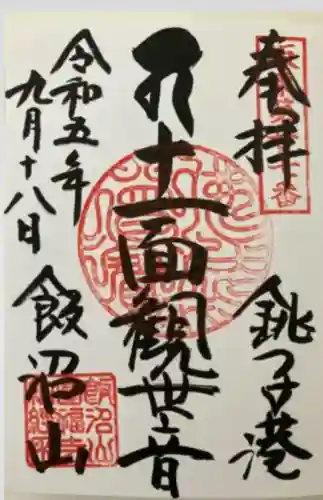 奉拝
銚子港
十一面観世音
飯沼山
令和五年
九月十八日
飯沼山